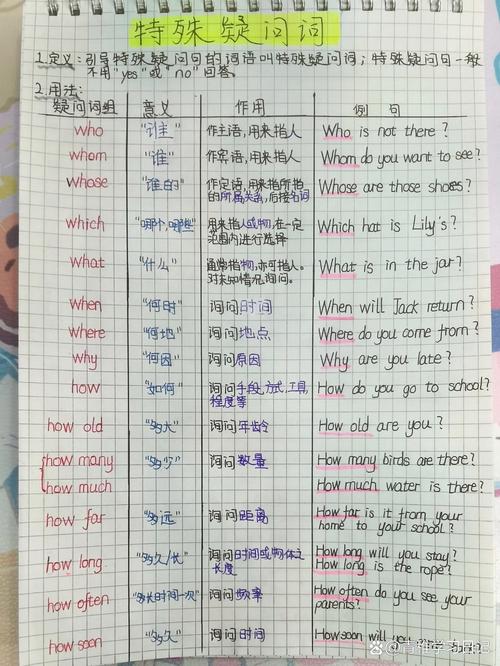 特殊疑问词
1.定义:引导特殊疑问句的词语叫特殊疑问词;特殊疑问句一般
不用"yes"或"no"回答。
2.用法:
疑问词组 意义 作用 例句
who "谁" 作主语,用来指人 Who is not there?
whom "谁" 作宾语,用来指人 Whom do you want to see?
whose "谁的" 作定语,用来指所指的所属关系,后接名词 Whose are those shoes?
which "哪个,哪些" 用来指人或物,在一定范围内进行选择 Which hat is Lily's?
what "什么" 通常指物,亦可指人。对未知情况询问。 What is in the jar?
when "何时" 询问时间 When will Jack return?
where "何地" 询问地点 Where do you come from?
why "何因" 询问原因 Why are you late?
how "如何" 询问手段,方式,工具,程度等 How do you go to school?
how old "多大" 询问年龄 How old are you?
how many "多少" 询问数量 How many birds are there?
how much How much water is there?
how far "多远" 询问距离 How far is it from your home to your school?
how long "多久/长" 询问时间或物体之长度 How long will you stay?
How long is the rope?
how often "多长时间一次" 询问频率 How often do you see your parents?
how soon "多久" 询问时间 How soon will you